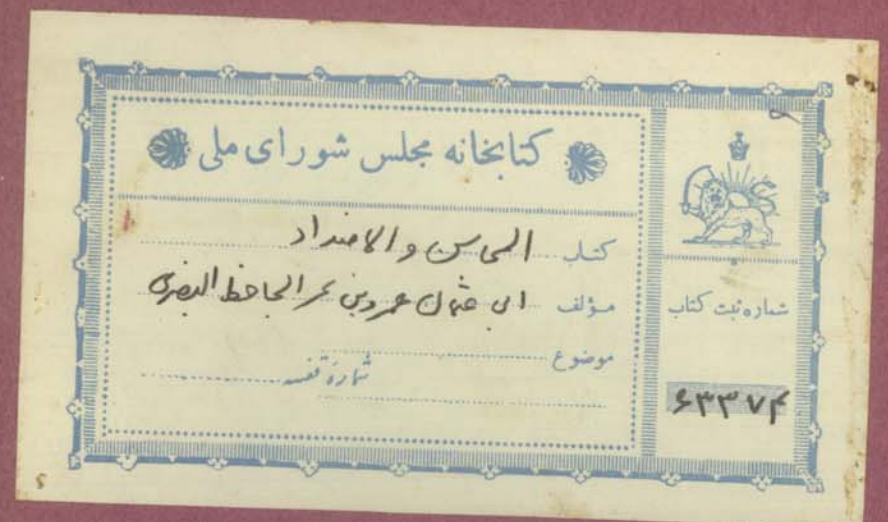 کتابخانه مجلس شورای ملی
کتاب المحاسن و الاضداد
مؤلف ابی عثمان عمروبن بحر الجاحظ البصری
موضوع
شمارهٔ قفسه
شماره ثبت کتاب
۶۳۳۷۴